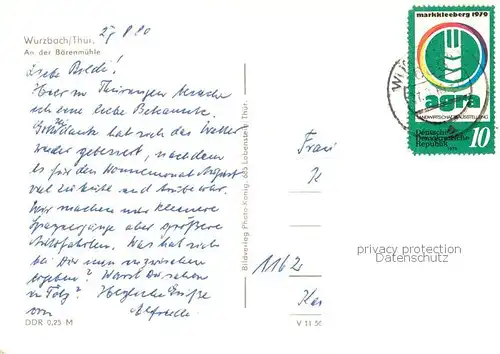 Wurzbach/Thür.
An der Bärenmühle
Liebe
Hier in Thüringen besuche
ich eine liebe Bekannte.
Gottdank hat sich das Wetter
wieder gebessert, nachdem
es für den Sommermonat August
viel zu kühl und trübe war.
Wir machen nur kleinere
Spaziergänge aber größere
Autofahrten. Was hat sich
bei Dir nun inzwischen
ergeben? Warst Du schon
in Tölz? Herzliche Grüße
von
DDR 0,25 M
Bildverlag Photo-König, 685 Lobenstein, Thür.
V 11 50
Frau
K
1162
Kar
markkleeberg 1979
agra
LANDWIRTSCHAFTSAUSSTELLUNG
Deutsche
Demokratische
Republik
10
privacy protection
Datenschutz